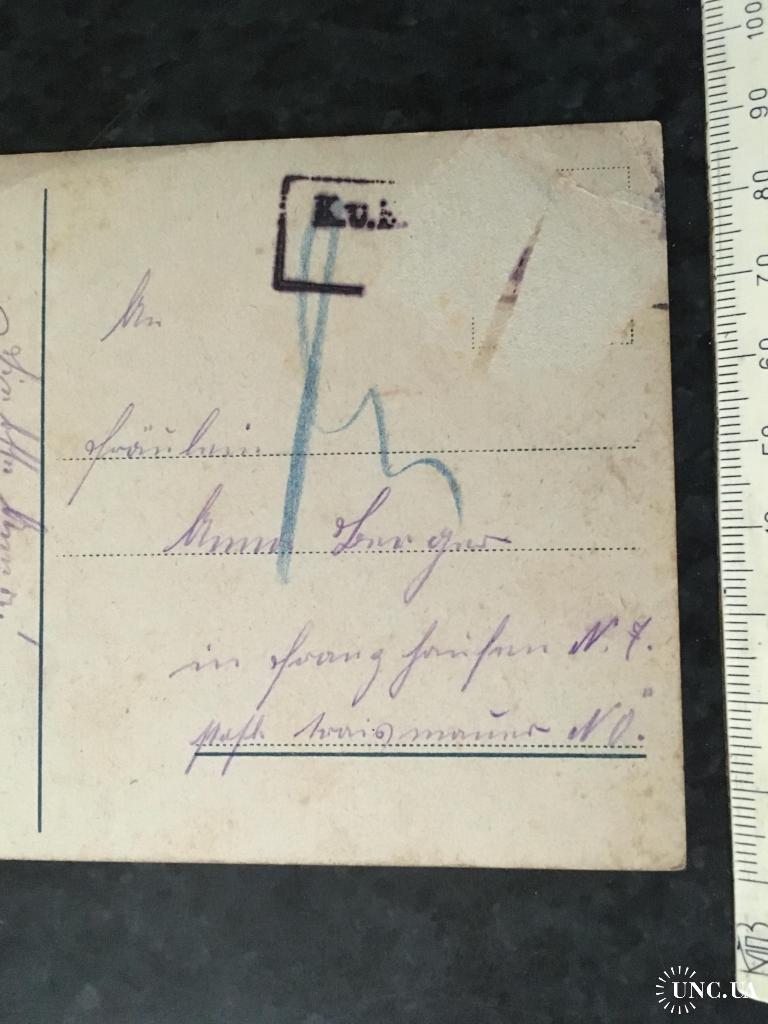 K.u.k.
An
Fräulein
Anna Berger
in Franzhausen N. 7.
Post Traismauer N Ö.
100
90
80
70
60
50
40
УПЗ
UNC.UA